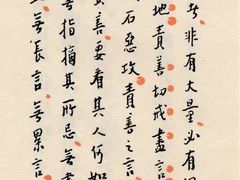 非有大量必有
地責善切戒盡言
石惡攻責善之言
善要看其人何如
無指摘其所忌無盡
無長言無累言